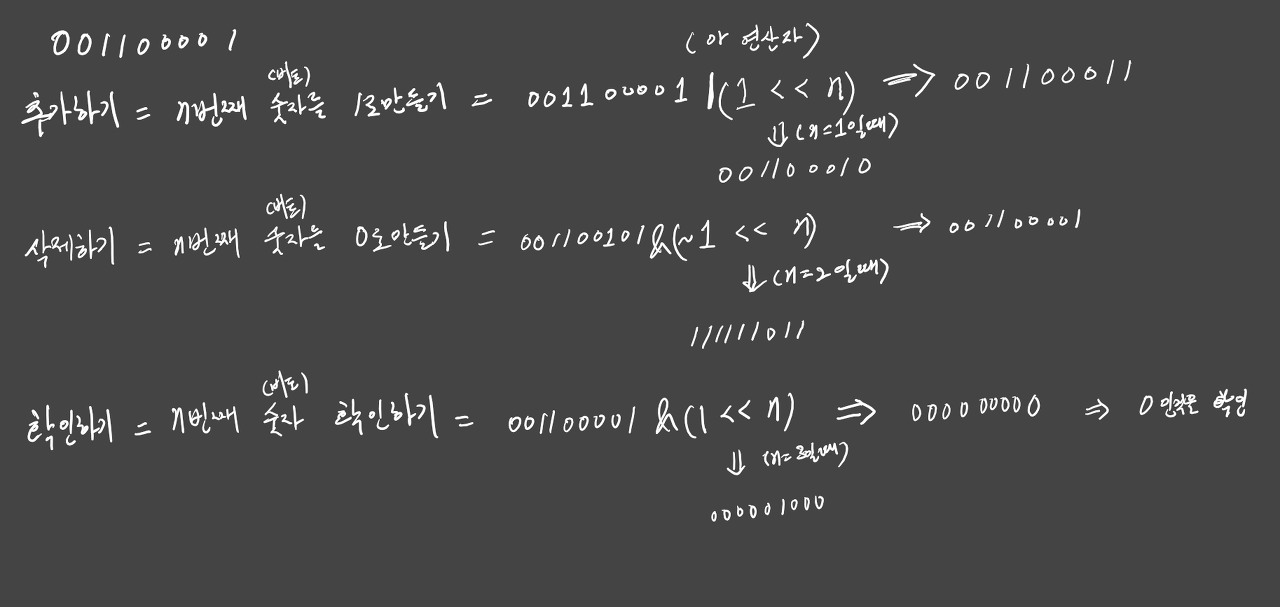 001100001
(아 연산자)
(비트)
추가하기 = n번째 숫자를 1로만들기 = 001100001 |(1 << n) ⇒ 001100011
⇓ (n=1일때)
001100010
(비트)
삭제하기 = n번째 숫자를 0로만들기 = 001100101 &(~1 << n) ⇒ 001100001
⇓ (n=2일때)
111111011
(비트)
확인하기 = n번째 숫자 확인하기 = 001100001 &(1 << n) ⇒ 000000000 ⇒ 0인것을 확인
⇓ (n=3일때)
000001000